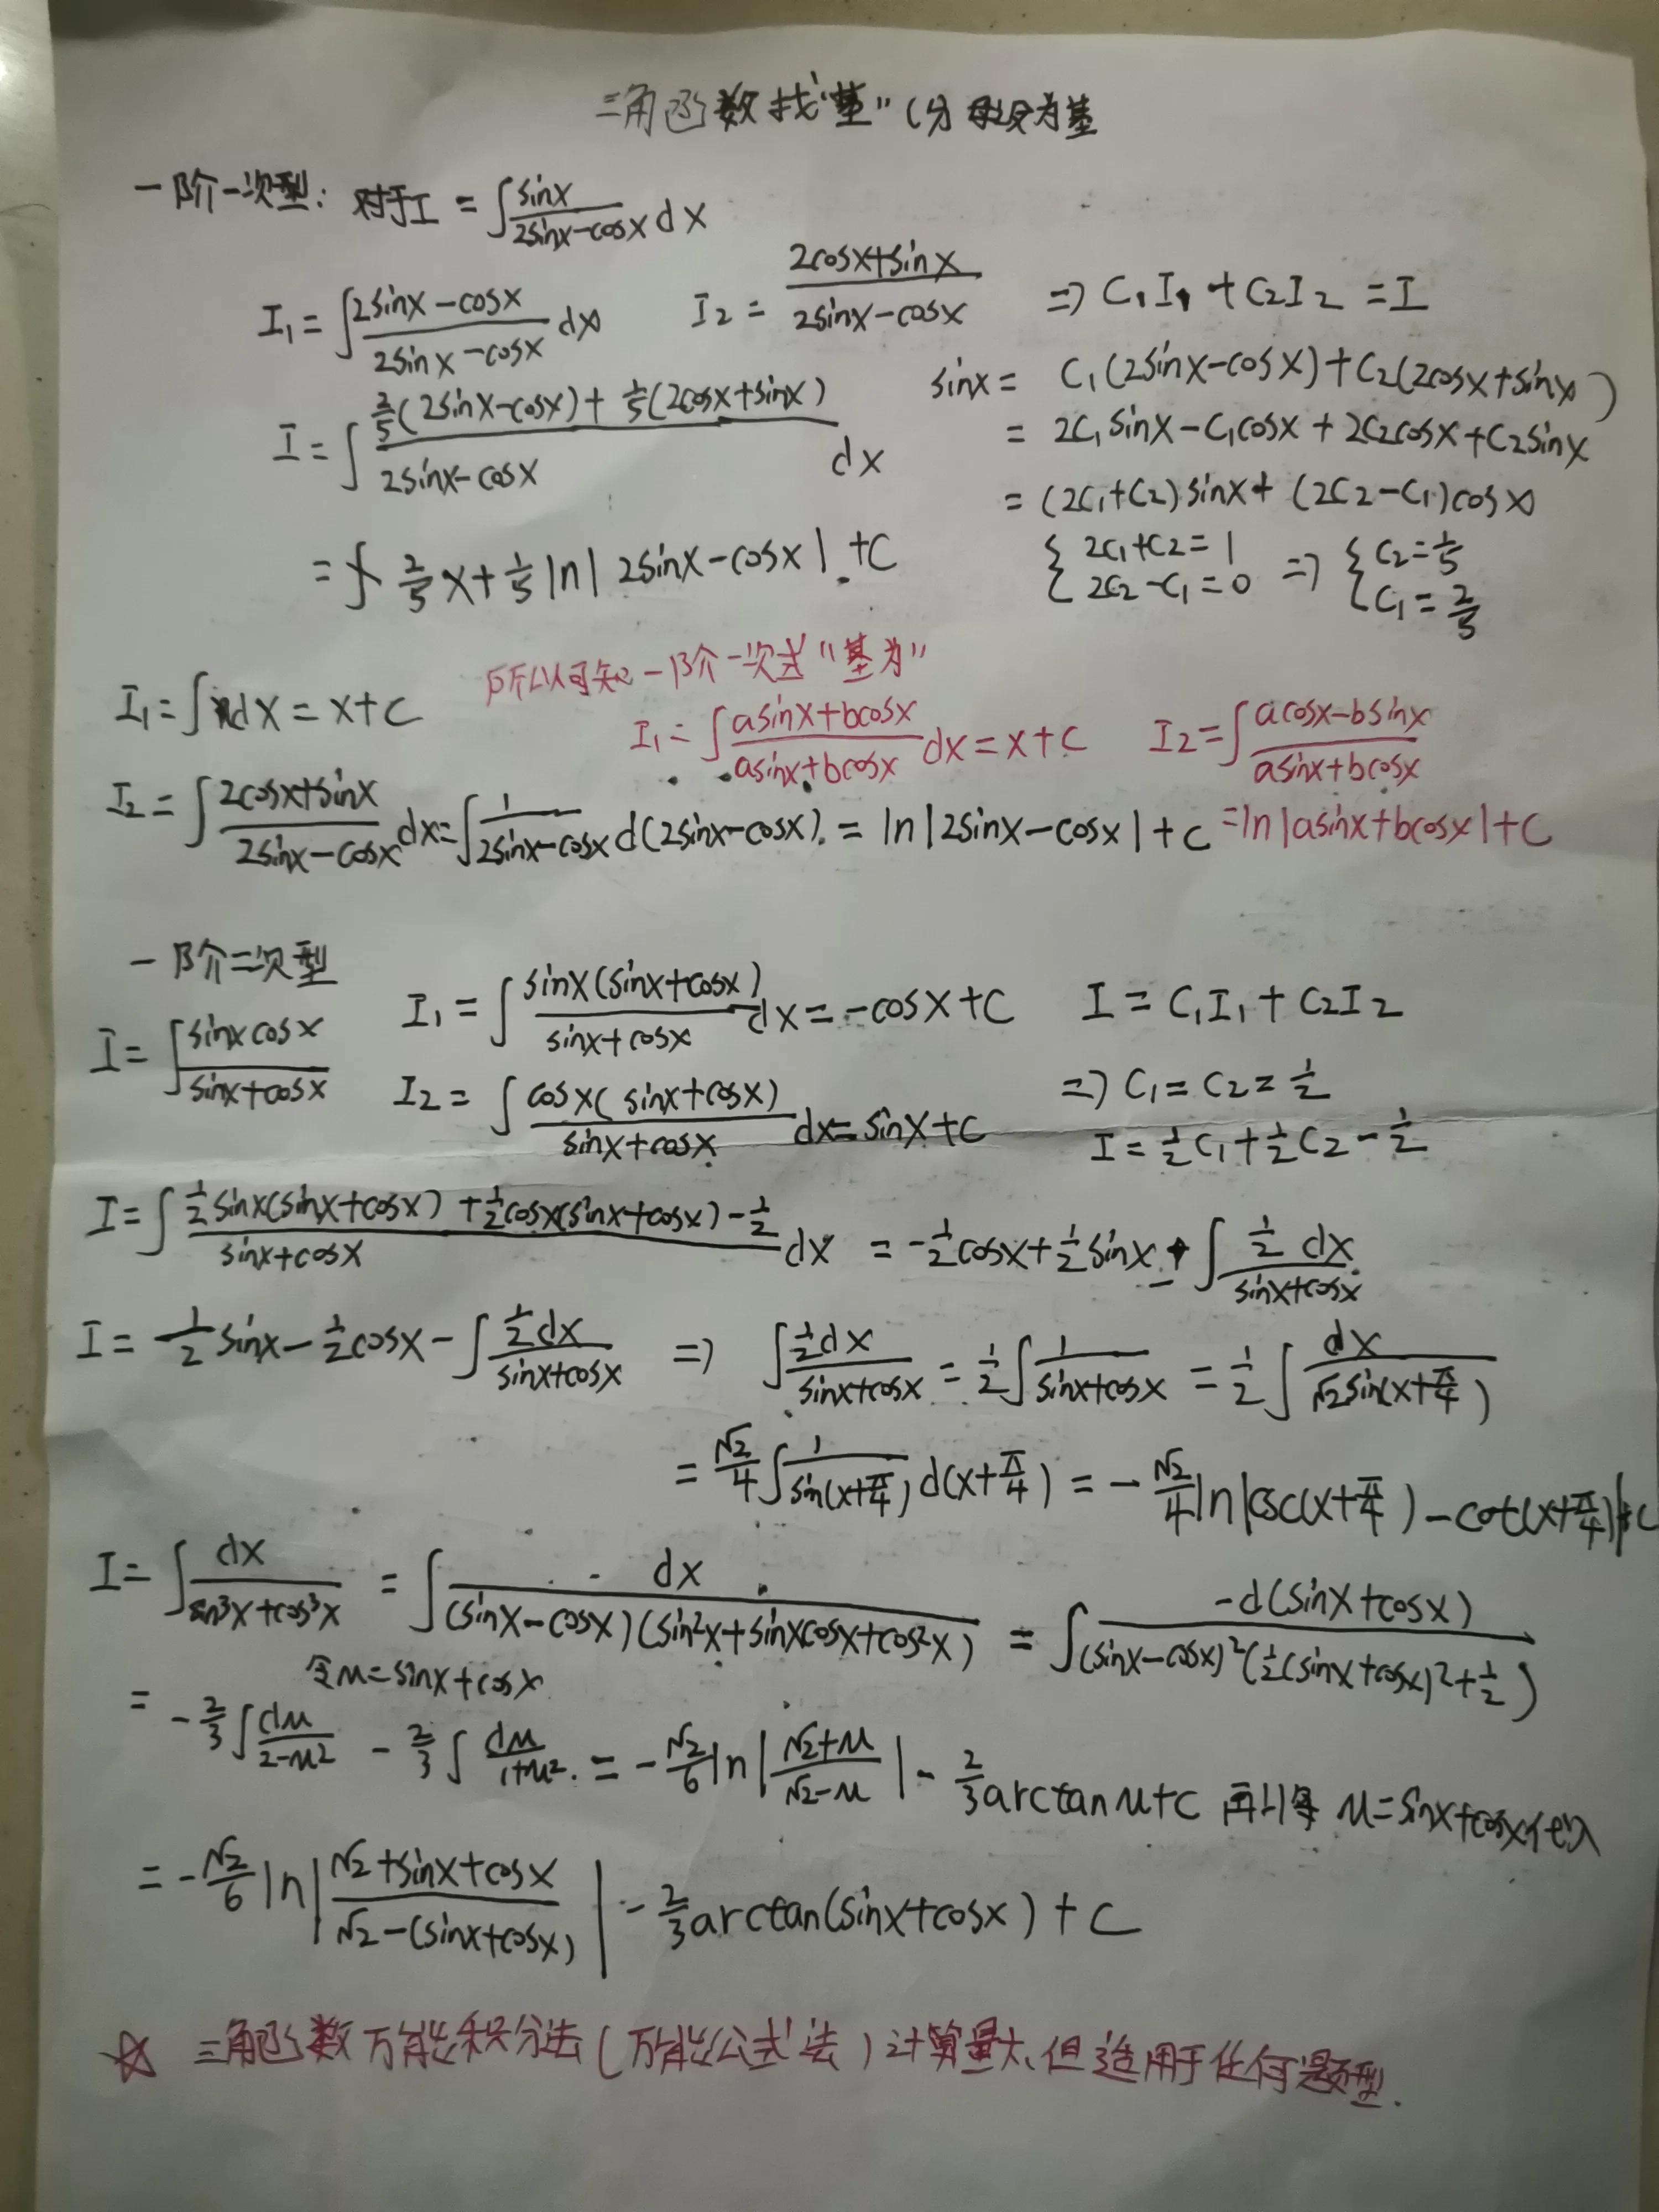 三角函数找“基”(分母设为基
一阶一次型: 对于I = ∫ sinx/(2sinx-cosx) dx
I₁ = ∫ (2sinx-cosx)/(2sinx-cosx) dx  I₂ = (2cosx+sinx)/(2sinx-cosx)  => C₁I₁ + C₂I₂ = I
sinx = C₁(2sinx-cosx)+C₂(2cosx+sinx)
I = ∫ (2/5(2sinx-cosx)+1/5(2cosx+sinx))/(2sinx-cosx) dx
= 2C₁sinx-C₁cosx+2C₂cosx+C₂sinx
= (2C₁+C₂)sinx+(2C₂-C₁)cosx
= 2/5 x+1/5 ln|2sinx-cosx|+C
{ 2C₁+C₂=1  2C₂-C₁=0 => { C₂=1/5  C₁=2/5
所以可知一阶一次式“基为”
I₁=∫dx = x+C
I₁=∫ (asinx+bcosx)/(asinx+bcosx) dx = x+C  I₂=∫ (acosx-bsinx)/(asinx+bcosx)
=ln|asinx+bcosx|+C
I₂ = ∫ (2cosx+sinx)/(2sinx-cosx) dx=∫ 1/(2sinx-cosx) d(2sinx-cosx) = ln|2sinx-cosx|+C
一阶二次型
I=∫ sinxcosx/(sinx+cosx)
I₁ = ∫ sinx(sinx+cosx)/(sinx+cosx) dx=-cosx+C  I = C₁I₁+C₂I₂
I₂ = ∫ cosx(sinx+cosx)/(sinx+cosx) dx=sinx+C  => C₁=C₂=1/2
I=1/2C₁+1/2C₂-1/2
I=∫ (1/2sinx(sinx+cosx)+1/2cosx(sinx+cosx)-1/2)/(sinx+cosx) dx = -1/2cosx+1/2sinx - ∫ 1/2dx/(sinx+cosx)
I = 1/2sinx-1/2cosx-∫ 1/2dx/(sinx+cosx) => ∫ 1/2dx/(sinx+cosx) = 1/2∫ 1/(sinx+cosx) = 1/2∫ dx/(√2sin(x+π/4))
= √2/4∫ 1/sin(x+π/4) d(x+π/4) = -√2/4 ln|csc(x+π/4)-cot(x+π/4)|+C
I=∫ dx/(sin³x+cos³x) = ∫ dx/((sinx-cosx)(sin²x+sinxcosx+cos²x)) = ∫ -d(sinx+cosx)/((sinx-cosx)²(1/2(sinx+cosx)²+1/2))
令u=sinx+cosx
= -2/3∫ du/(2-u²) - 2/3∫ du/(1+u²) = -√2/6 ln|(√2+u)/(√2-u)| - 2/3arctanu+C 再将u=sinx+cosx代入
= -√2/6 ln|(√2+sinx+cosx)/(√2-(sinx+cosx))| - 2/3arctan(sinx+cosx)+C
☆ 三角函数万能积分法(万能公式法)计算量大,但适用于任何题型.